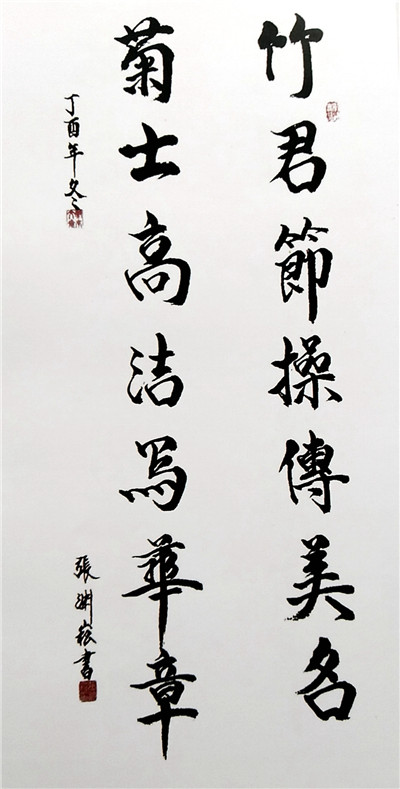 竹君節操傳美名
菊士高洁写華章
丁酉年冬
張淵崧書